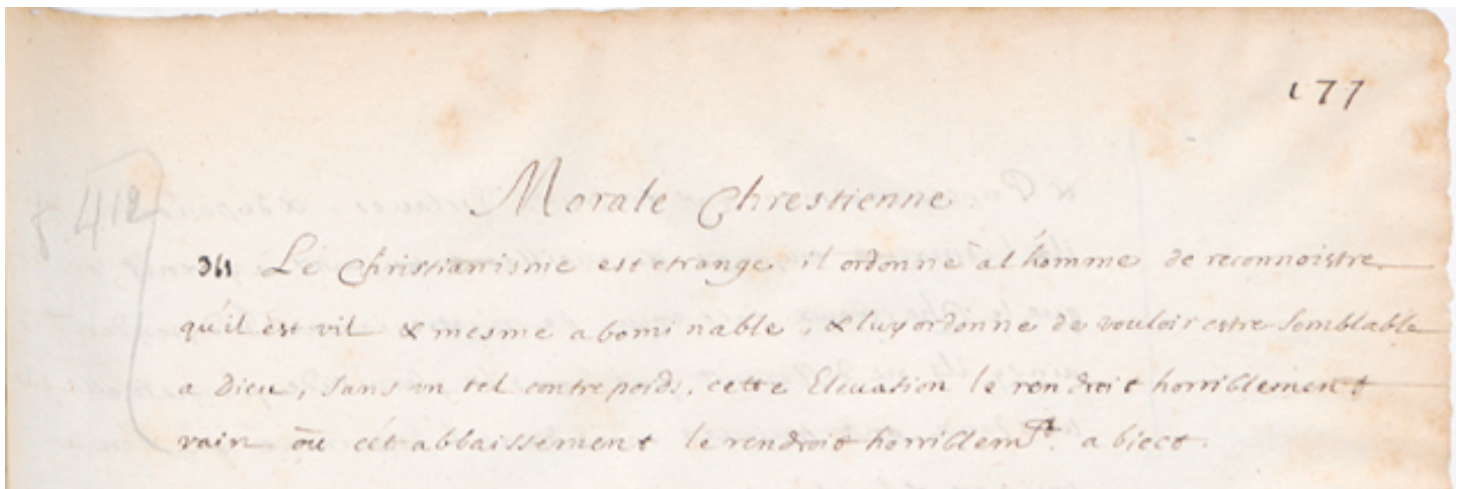 177
Morale Chrestienne
412
Le Christianisme est etrange il ordonne al'homme de reconnoistre
qu'il est vil & mesme abominable, & luy ordonne de vouloir estre semblable
a Dieu, sans un tel contrepoids, cette Elevation le rendroit horriblement
vain ou cét abbaissement le rendroit horriblemt. abiect.